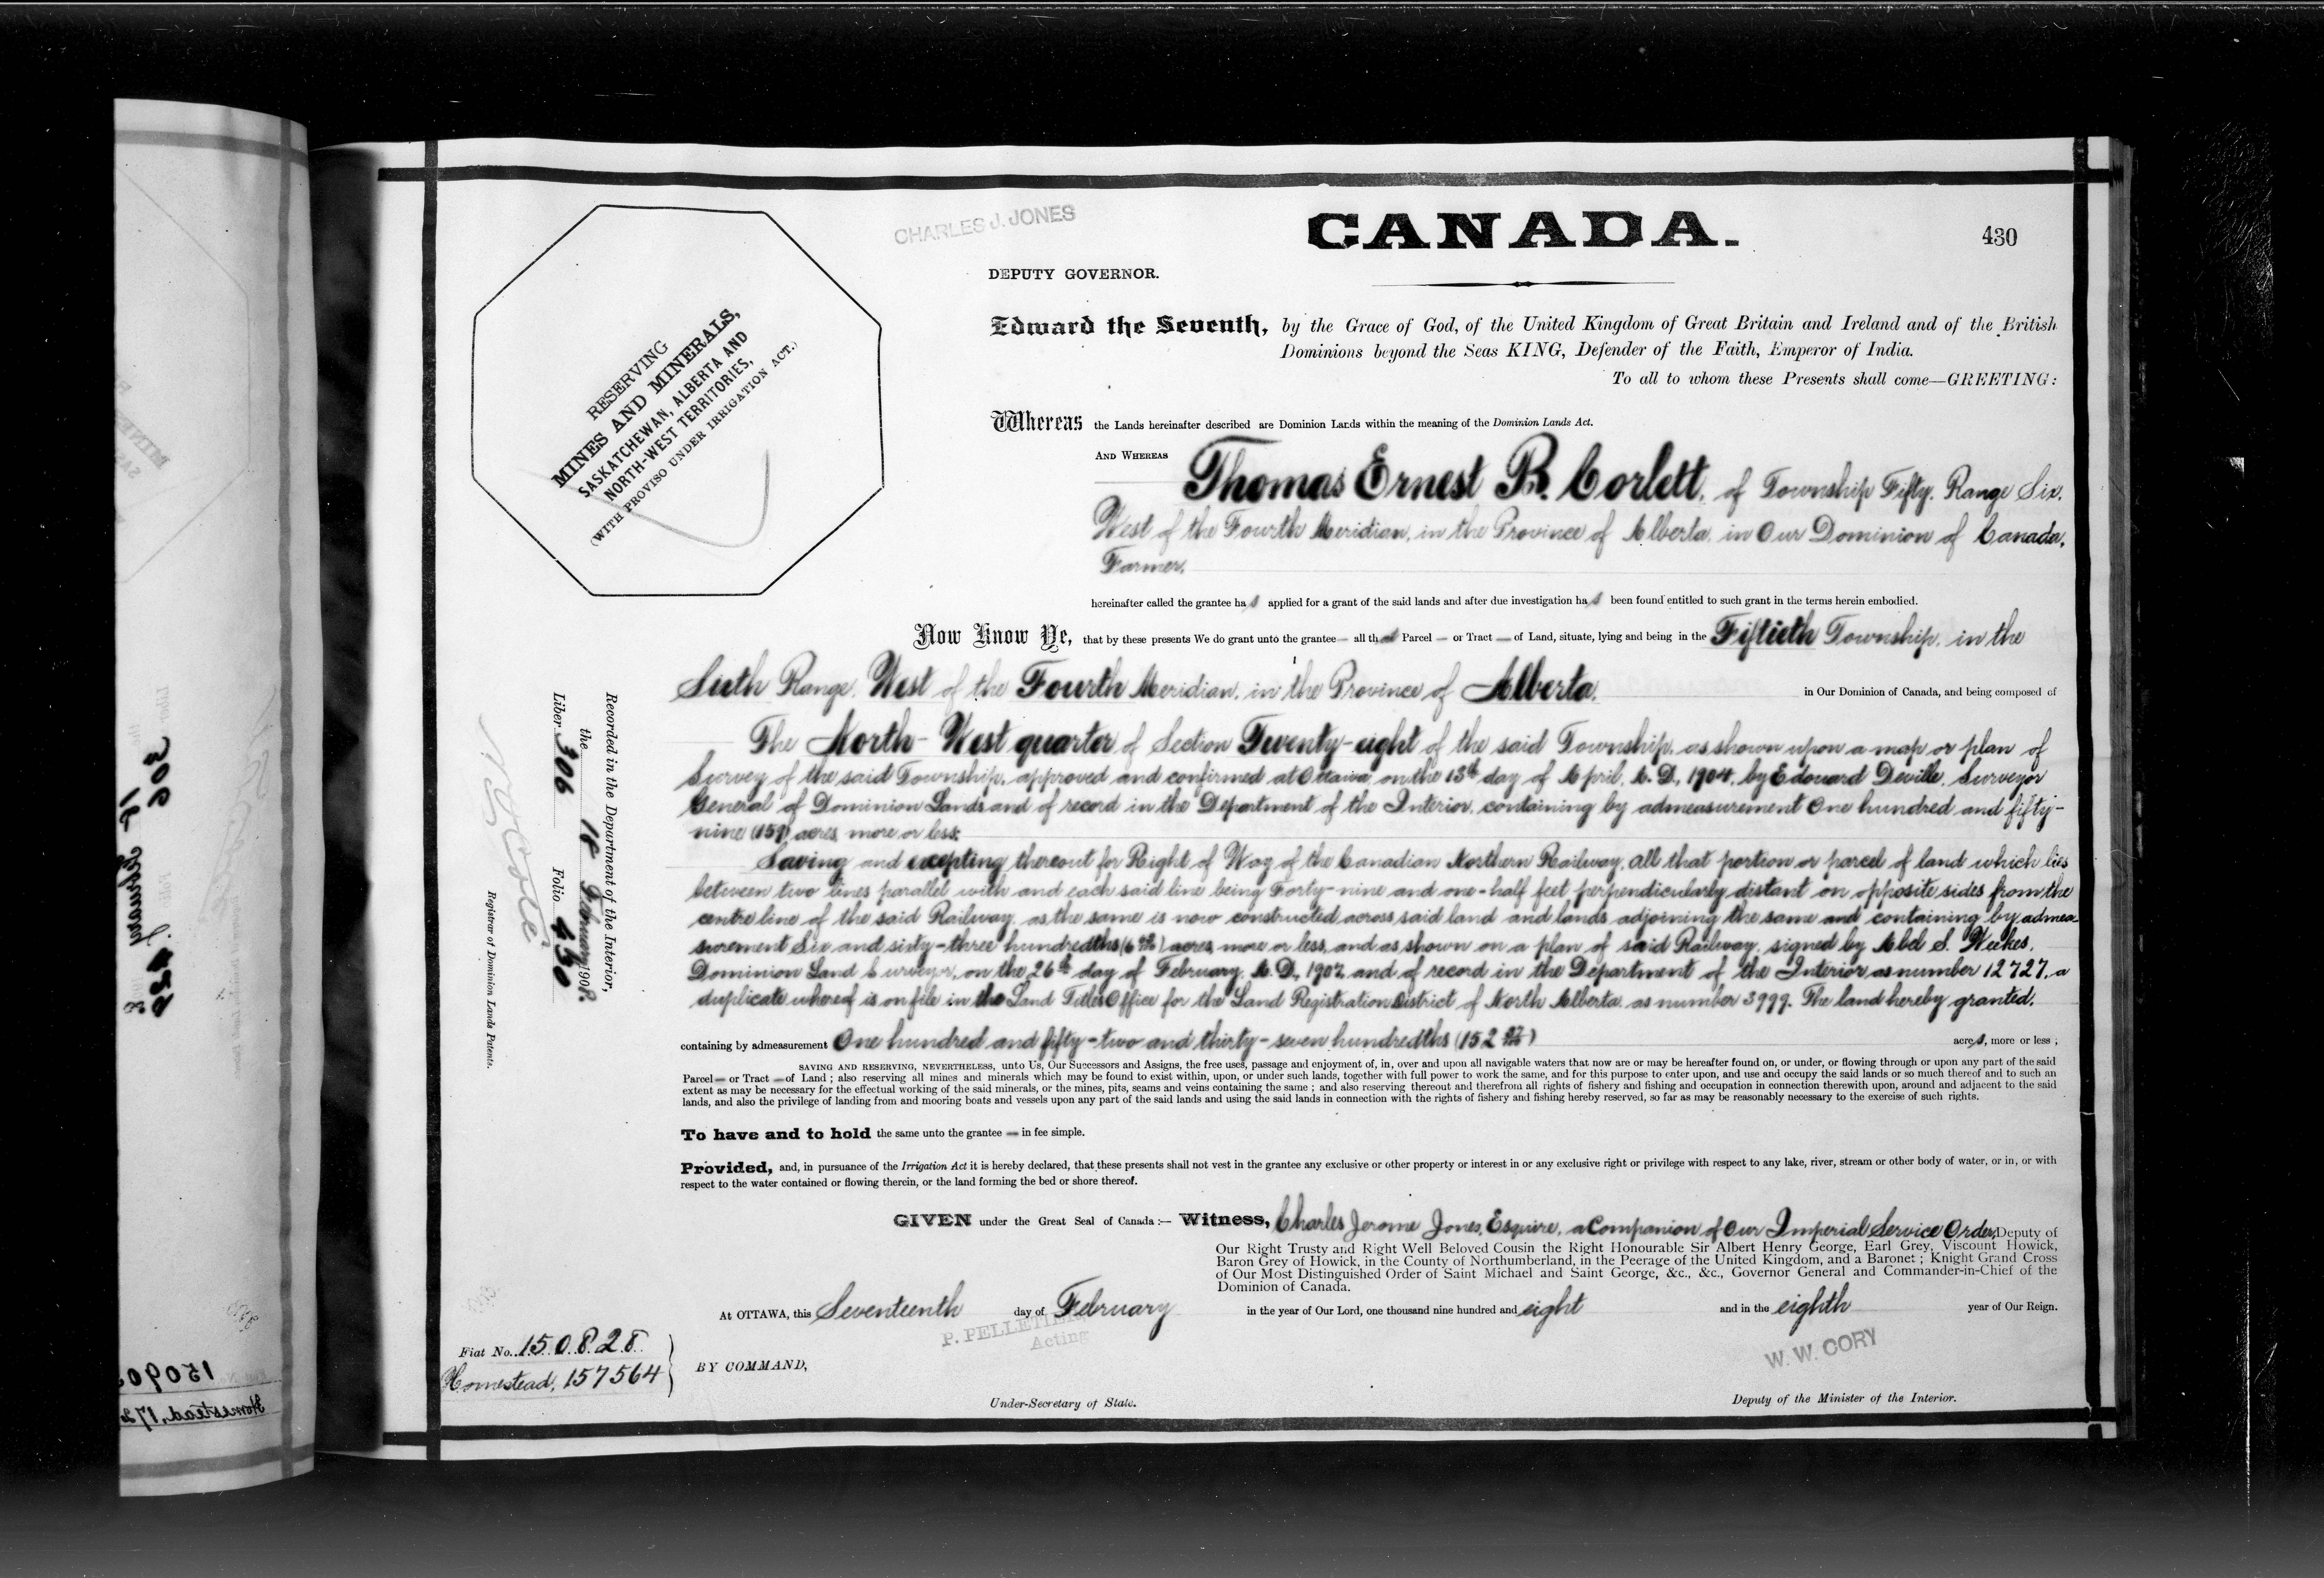 CHARLES J. JONES
CANADA.
430
DEPUTY GOVERNOR.
RESERVING
MINES AND MINERALS,
SASKATCHEWAN, ALBERTA AND
NORTH-WEST TERRITORIES,
(WITH PROVISO UNDER IRRIGATION ACT.)
Edward the Seventh, by the Grace of God, of the United Kingdom of Great Britain and Ireland and of the British
Dominions beyond the Seas KING, Defender of the Faith, Emperor of India.
To all to whom these Presents shall come—GREETING:
Whereas the Lands hereinafter described are Dominion Lands within the meaning of the Dominion Lands Act.
AND WHEREAS Thomas Ernest B. Corlett, of Township Fifty, Range Six,
West of the Fourth Meridian, in the Province of Alberta, in Our Dominion of Canada,
Farmer,
hereinafter called the grantee has applied for a grant of the said lands and after due investigation has been found entitled to such grant in the terms herein embodied.
Now Know Ye, that by these presents We do grant unto the grantee — all that Parcel — or Tract — of Land, situate, lying and being in the Fiftieth Township, in the
Sixth Range, West of the Fourth Meridian, in the Province of Alberta, in Our Dominion of Canada, and being composed of
The North-West quarter of Section Twenty-eight of the said Township, as shown upon a map or plan of
Survey of the said Township, approved and confirmed at Ottawa, on the 13th day of April, A.D., 1904, by Edouard Deville, Surveyor
General of Dominion Lands and of record in the Department of the Interior, containing by admeasurement One hundred and fifty-
nine (159) acres, more or less:
Saving and excepting thereout for Right of Way of the Canadian Northern Railway, all that portion or parcel of land which lies
between two lines parallel with and each said line being Forty-nine and one-half feet perpendicularly distant on opposite sides from the
centre line of the said Railway, as the same is now constructed across said land and lands adjoining the same and containing by admea-
surement Six and sixty-three hundredths (6 63/100) acres, more or less, and as shown on a plan of said Railway, signed by Abel S. Weekes,
Dominion Land Surveyor, on the 26th day of February, A.D., 1907, and of record in the Department of the Interior as number 12727, a
duplicate whereof is on file in the Land Titles Office for the Land Registration District of North Alberta, as number 3999. The land hereby granted,
containing by admeasurement One hundred and fifty-two and thirty-seven hundredths (152 37/100) acres, more or less ;
SAVING AND RESERVING, NEVERTHELESS, unto Us, Our Successors and Assigns, the free uses, passage and enjoyment of, in, over and upon all navigable waters that now are or may be hereafter found on, or under, or flowing through or upon any part of the said
Parcel — or Tract — of Land ; also reserving all mines and minerals which may be found to exist within, upon, or under such lands, together with full power to work the same, and for this purpose to enter upon, and use and occupy the said lands or so much thereof and to such an
extent as may be necessary for the effectual working of the said minerals, or the mines, pits, seams and veins containing the same ; and also reserving thereout and therefrom all rights of fishery and fishing and occupation in connection therewith upon, around and adjacent to the said
lands, and also the privilege of landing from and mooring boats and vessels upon any part of the said lands and using the said lands in connection with the rights of fishery and fishing hereby reserved, so far as may be reasonably necessary to the exercise of such rights.
To have and to hold the same unto the grantee — in fee simple.
Provided, and, in pursuance of the Irrigation Act it is hereby declared, that these presents shall not vest in the grantee any exclusive or other property or interest in or any exclusive right or privilege with respect to any lake, river, stream or other body of water, or in, or with
respect to the water contained or flowing therein, or the land forming the bed or shore thereof.
GIVEN under the Great Seal of Canada :— Witness, Charles Jerome Jones, Esquire, a Companion of Our Imperial Service Order, Deputy of
Our Right Trusty and Right Well Beloved Cousin the Right Honourable Sir Albert Henry George, Earl Grey, Viscount Howick,
Baron Grey of Howick, in the County of Northumberland, in the Peerage of the United Kingdom, and a Baronet ; Knight Grand Cross
of Our Most Distinguished Order of Saint Michael and Saint George, &c., &c., Governor General and Commander-in-Chief of the
Dominion of Canada.
At OTTAWA, this Seventeenth day of February in the year of Our Lord, one thousand nine hundred and eight and in the eighth year of Our Reign.
P. PELLETIER
Acting
W. W. CORY
BY COMMAND,
Under-Secretary of State.
Deputy of the Minister of the Interior.
Fiat No. 150828
Homestead, 157564
Recorded in the Department of the Interior,
the 18 February 1908.
Liber 306 Folio 430
N.O. Coté
Registrar of Dominion Lands Patents.